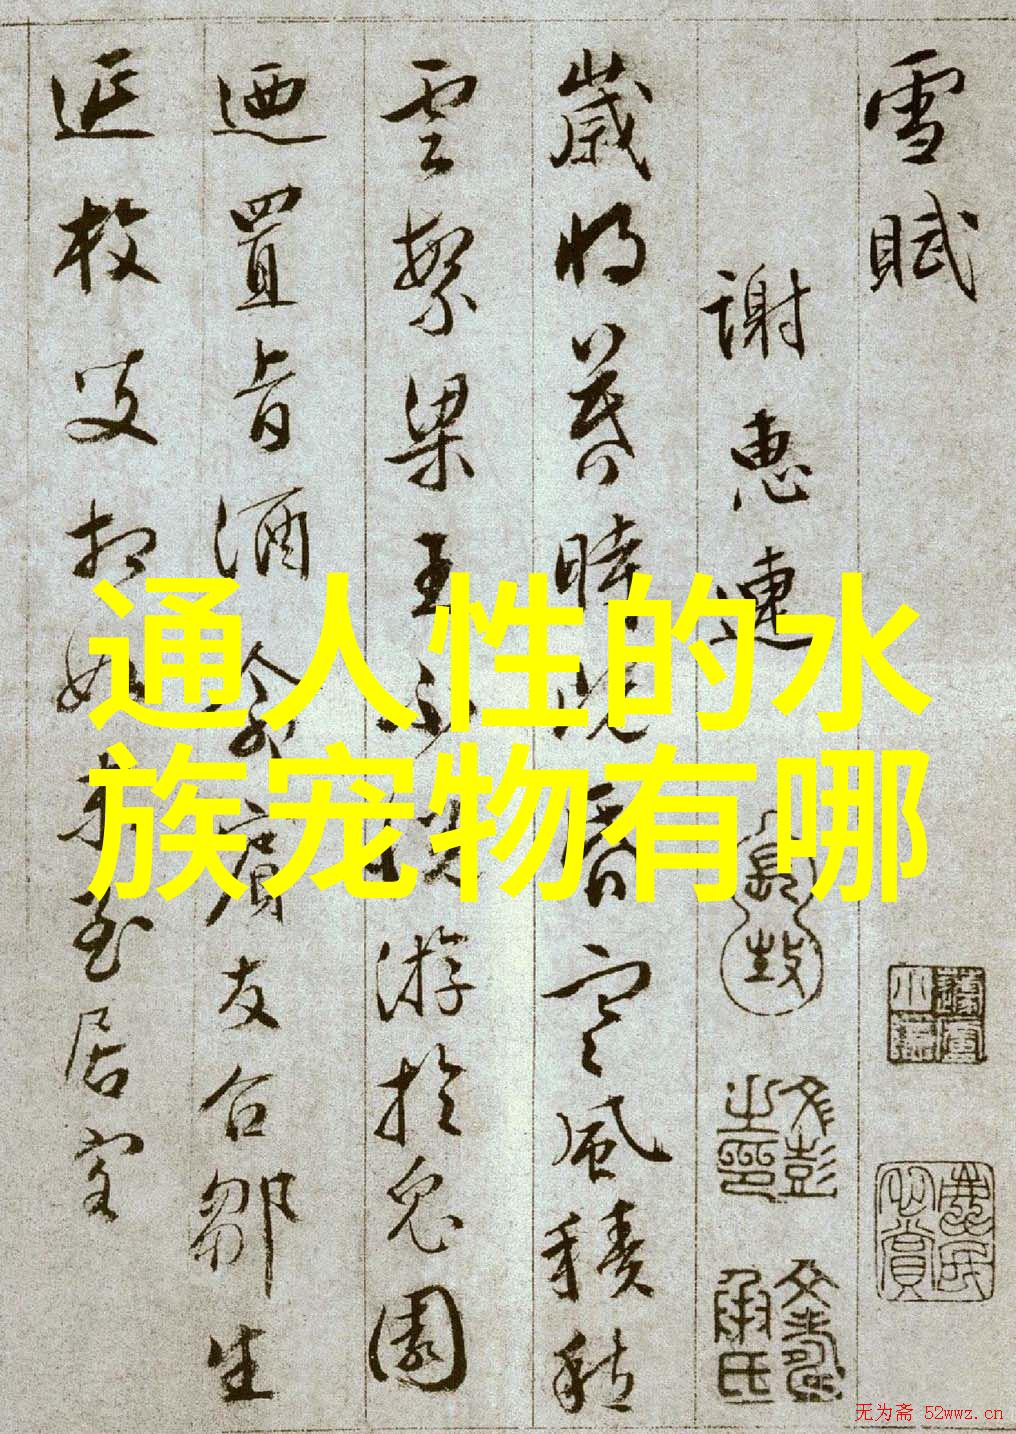 雪賦
謝惠連
歲將暮時既昏寒風積愁
雲繁梁王不悅游於兔園
迺置旨酒命賓友召鄒生
延枚叟相如末至居客
通人性的水
族宠物有哪
无为斋 52wwz.cn